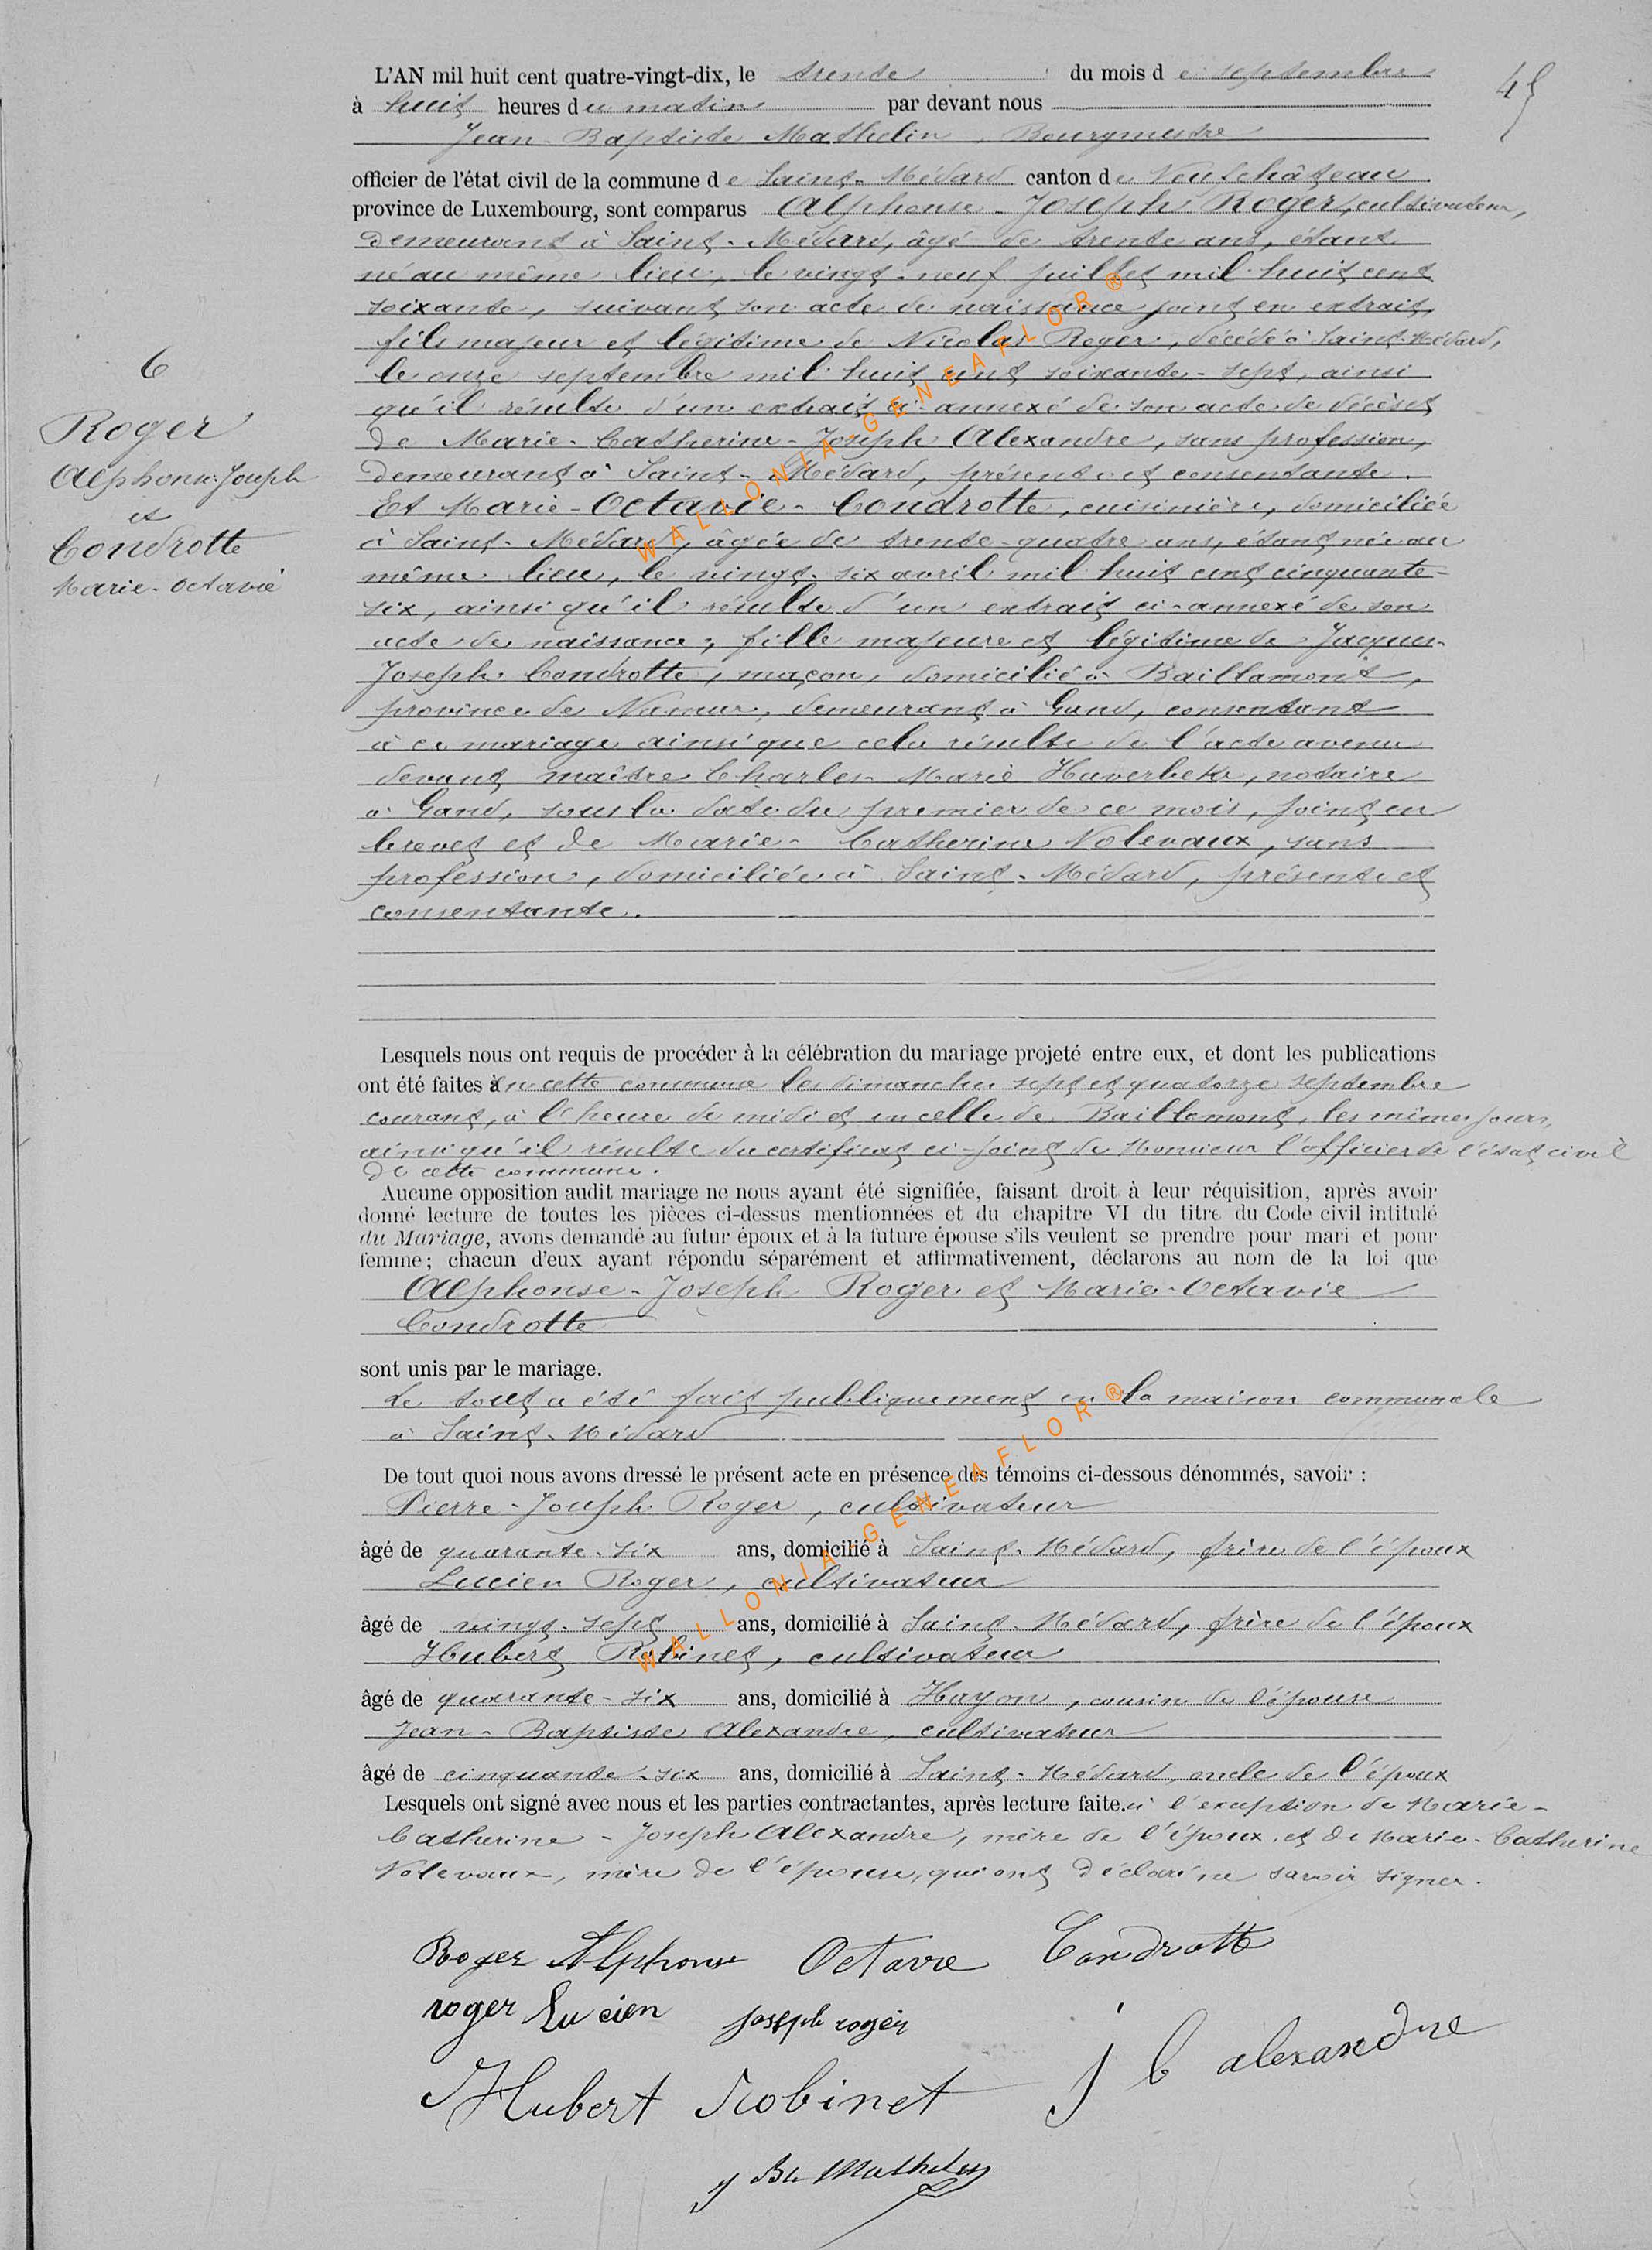 L'AN mil huit cent quatre-vingt-dix, le trente du mois de septembre
45
à huit heures du matin par devant nous
Jean-Baptiste Mathelin, Bourgmestre
officier de l'état civil de la commune de Saint-Médard canton de Neufchâteau
province de Luxembourg, sont comparus Alphonse-Joseph Roger, cultivateur,
demeurant à Saint-Médard, âgé de trente ans, étant
né au même lieu, le vingt-neuf juillet mil huit cent
soixante, suivant son acte de naissance joint en extrait,
fils majeur et légitime de Nicolas Roger, décédé à Saint-Médard,
le onze septembre mil huit cent soixante-sept, ainsi
qu'il résulte d'un extrait ci-annexé de son acte de décès et
de Marie-Catherine-Joseph Alexandre, sans profession,
demeurant à Saint-Médard, présente et consentante.
Et Marie-Octavie-Condrotte, cuisinière, domiciliée
à Saint-Médard, âgée de trente-quatre ans, étant née au
même lieu, le vingt-six avril mil huit cent cinquante-
six, ainsi qu'il résulte d'un extrait ci-annexé de son
acte de naissance, fille majeure et légitime de Jacques-
Joseph Condrotte, maçon, domicilié à Baillamont,
province de Namur, demeurant à Gand, consentant
à ce mariage ainsi que cela résulte de l'acte avenu
devant maître Charles Marie Haverbeke, notaire
à Gand, sous la date du premier de ce mois, joint en
brevet et de Marie-Catherine Nolevaux, sans
profession, domiciliée à Saint-Médard, présente et
consentante.
6
Roger
Alphonse-Joseph
et
Condrotte
Marie-Octavie
Lesquels nous ont requis de procéder à la célébration du mariage projeté entre eux, et dont les publications
ont été faites en cette commune les dimanches sept et quatorze septembre
courant, à l'heure de midi et en celle de Baillamont, les mêmes jours,
ainsi qu'il résulte du certificat ci-joint de Monsieur l'officier de l'état civil
de cette commune.
Aucune opposition audit mariage ne nous ayant été signifiée, faisant droit à leur réquisition, après avoir
donné lecture de toutes les pièces ci-dessus mentionnées et du chapitre VI du titre du Code civil intitulé
du Mariage, avons demandé au futur époux et à la future épouse s'ils veulent se prendre pour mari et pour
femme; chacun d'eux ayant répondu séparément et affirmativement, déclarons au nom de la loi que
Alphonse-Joseph Roger et Marie-Octavie
Condrotte
sont unis par le mariage.
Le tout a été fait publiquement en la maison communale
à Saint-Médard
De tout quoi nous avons dressé le présent acte en présence des témoins ci-dessous dénommés, savoir :
Pierre-Joseph Roger, cultivateur
âgé de quarante-six ans, domicilié à Saint-Médard, frère de l'époux
Lucien Roger, cultivateur
âgé de vingt-sept ans, domicilié à Saint-Médard, frère de l'époux
Hubert Robinet, cultivateur
âgé de quarante-six ans, domicilié à Hayon, cousin de l'épouse
Jean-Baptiste Alexandre, cultivateur
âgé de cinquante-six ans, domicilié à Saint-Médard, oncle de l'époux
Lesquels ont signé avec nous et les parties contractantes, après lecture faite. à l'exception de Marie-
Catherine-Joseph Alexandre, mère de l'époux et de Marie-Catherine
Nolevaux, mère de l'épouse, qui ont déclaré ne savoir signer.
Roger Alphonse Octavie Condrotte
roger Lucien joseph roger
j b alexandre
Hubert Robinet
J Bte Mathelin
WALLONIA-GENEAFLOR®
WALLONIA-GENEAFLOR®